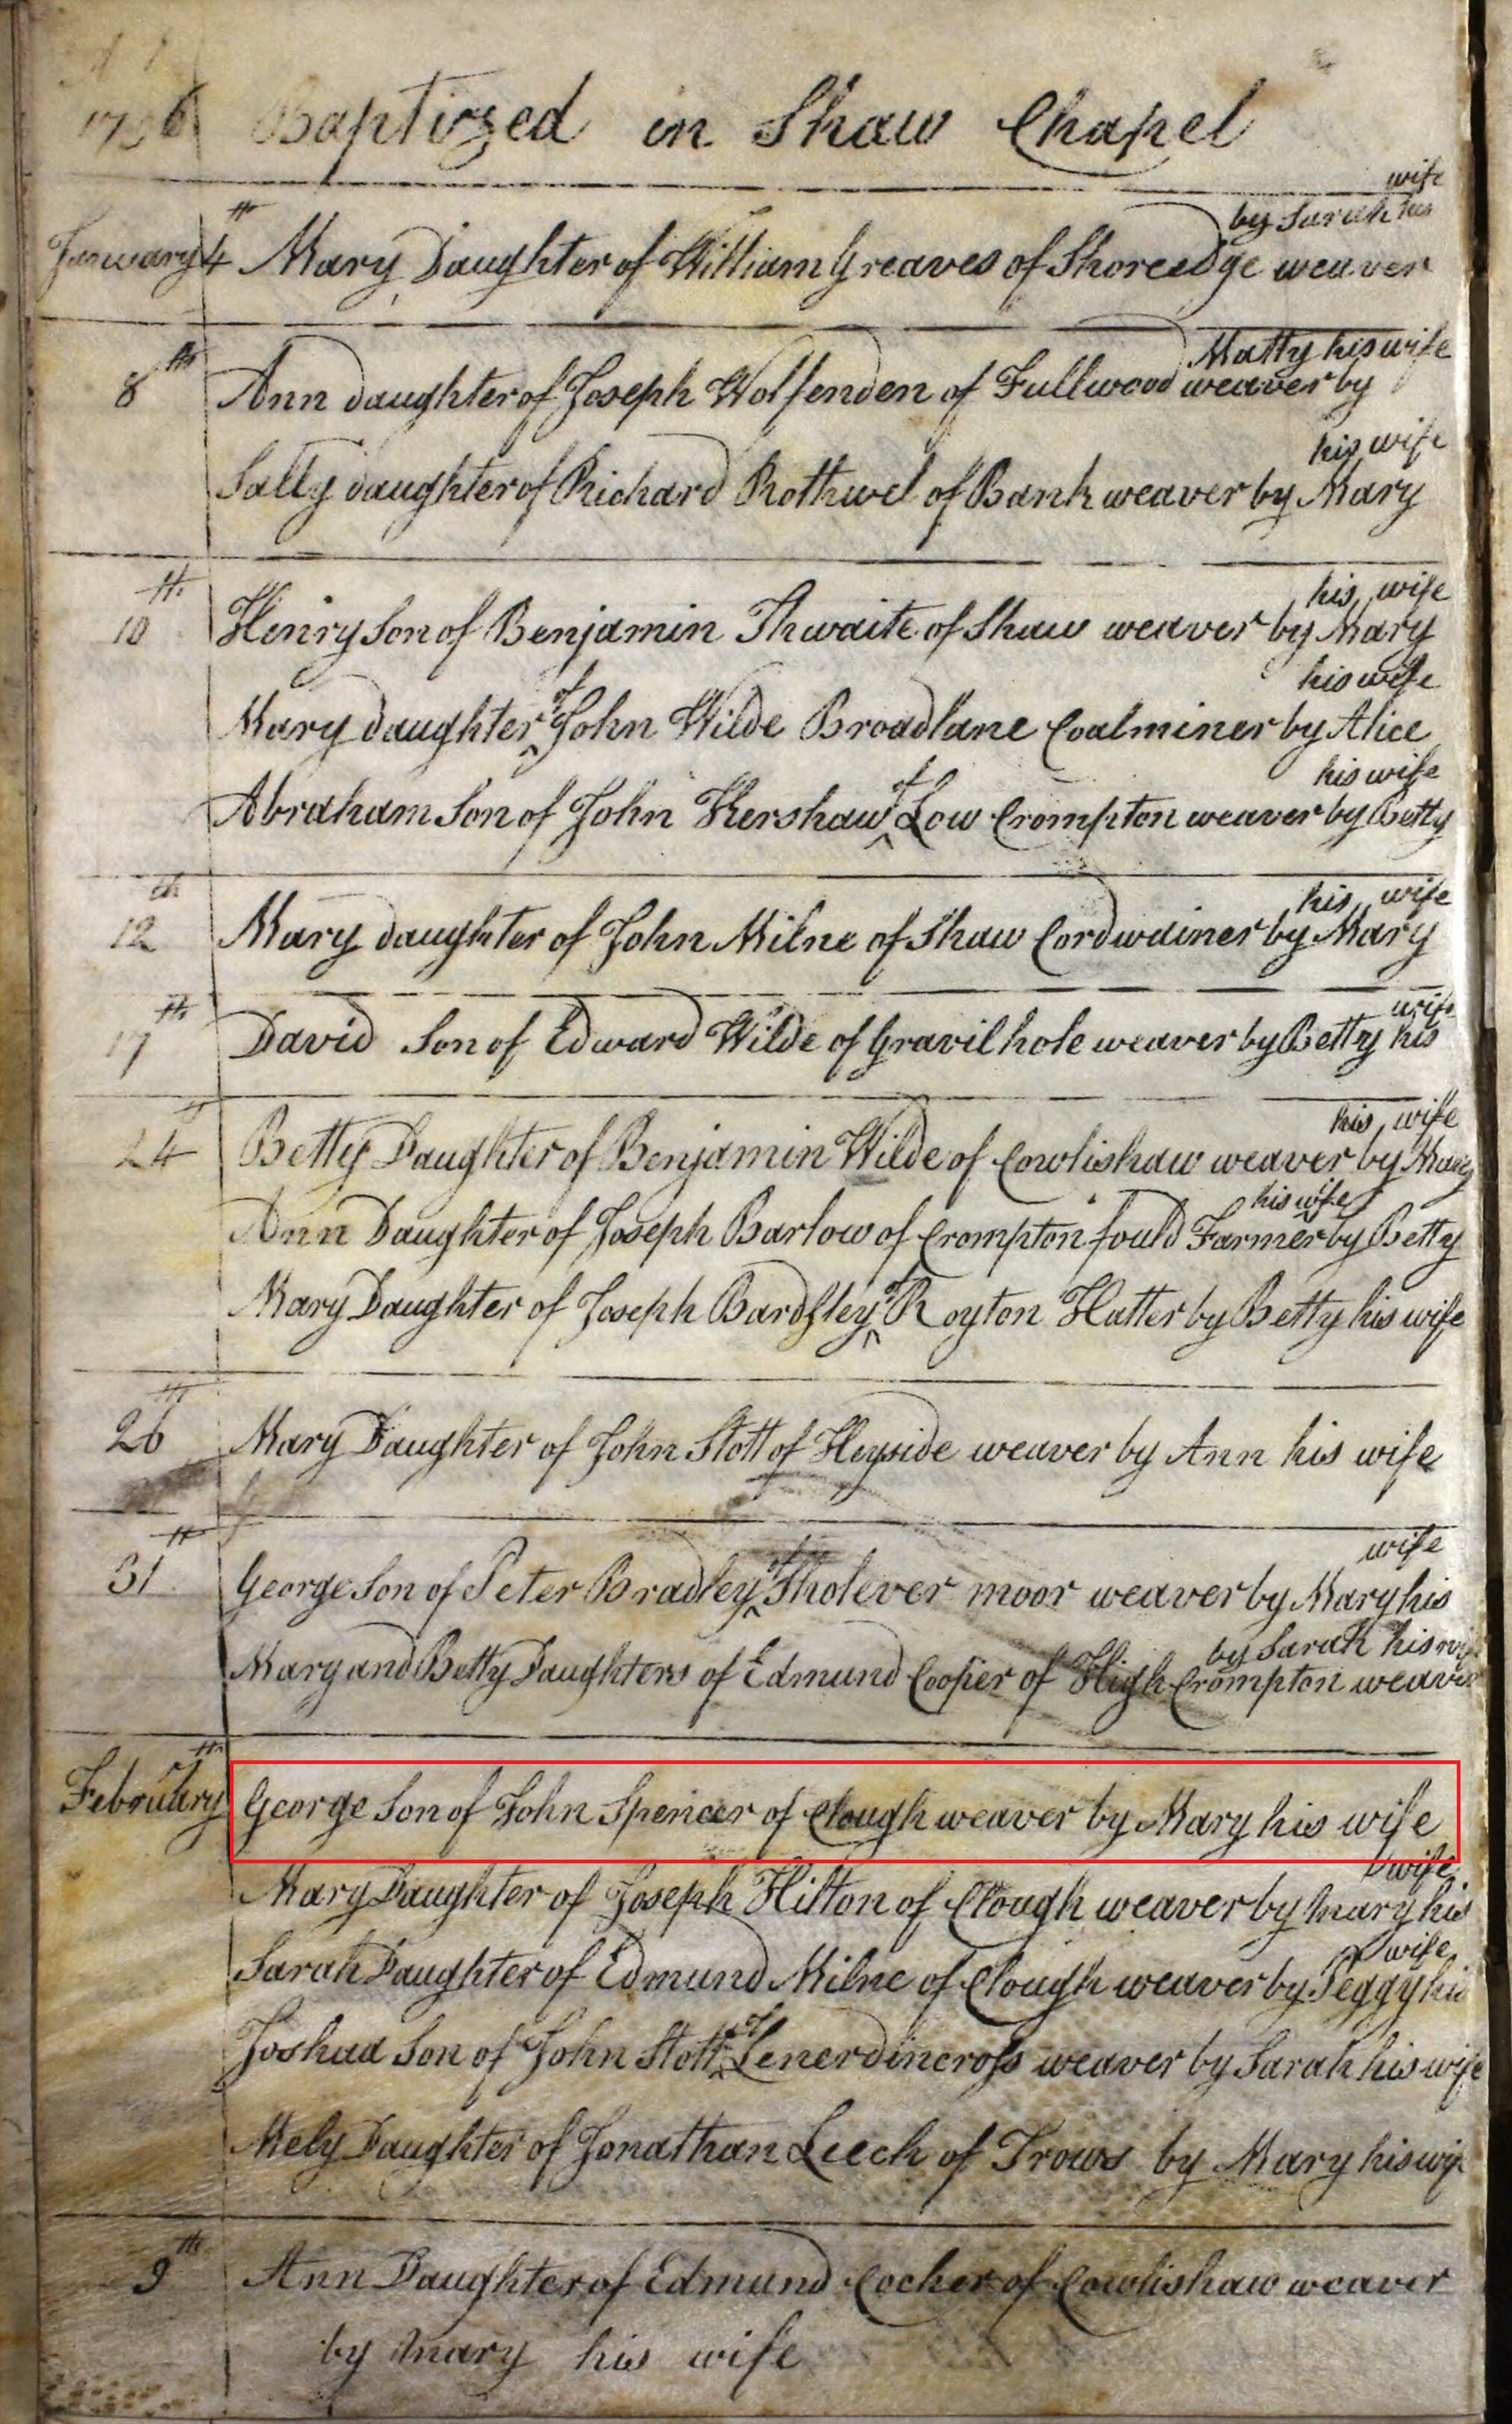 Baptized in Shaw Chapel
wife
by Sarah his
January 4th Mary Daughter of William Greaves of Shoreedge weaver
Matty his wife
8th Ann daughter of Joseph Wolfenden of Fullwood weaver by
his wife
Sally daughter of Richard Rothwel of Bank weaver by Mary
his wife
10th Henry Son of Benjamin Thwaite of Shaw weaver by Mary
his wife
Mary daughter of John Wilde Broadlane Coalminer by Alice
his wife
Abraham Son of John Kershaw of Low Crompton weaver by Betty
his wife
12th Mary daughter of John Milne of Shaw Cordwainer by Mary
wife
17th David Son of Edward Wilde of Gravilhole weaver by Betty his
his wife
24 Betty Daughter of Benjamin Wilde of Cowlishaw weaver by Mary
his wife
Ann Daughter of Joseph Barlow of Crompton fould Farmer by Betty
Mary Daughter of Joseph Bardsley of Royton Hatter by Betty his wife
26th Mary Daughter of John Stott of Heyside weaver by Ann his wife
wife
31th George Son of Peter Bradley of Tholever moor weaver by Mary his
by Sarah his wife
Mary and Betty Daughters of Edmund Cooper of High Crompton weaver
February George Son of John Spencer of Clough weaver by Mary his wife
wife
Mary Daughter of Joseph Hilton of Clough weaver by Mary his
wife
Sarah Daughter of Edmund Milne of Clough weaver by Peggy his
Joshua Son of John Stott of Lenerdincross weaver by Sarah his wife
Mely Daughter of Jonathan Leech of Trows by Mary his wif
9th Ann Daughter of Edmund Cocker of Cowlishaw weaver
by Mary his wife